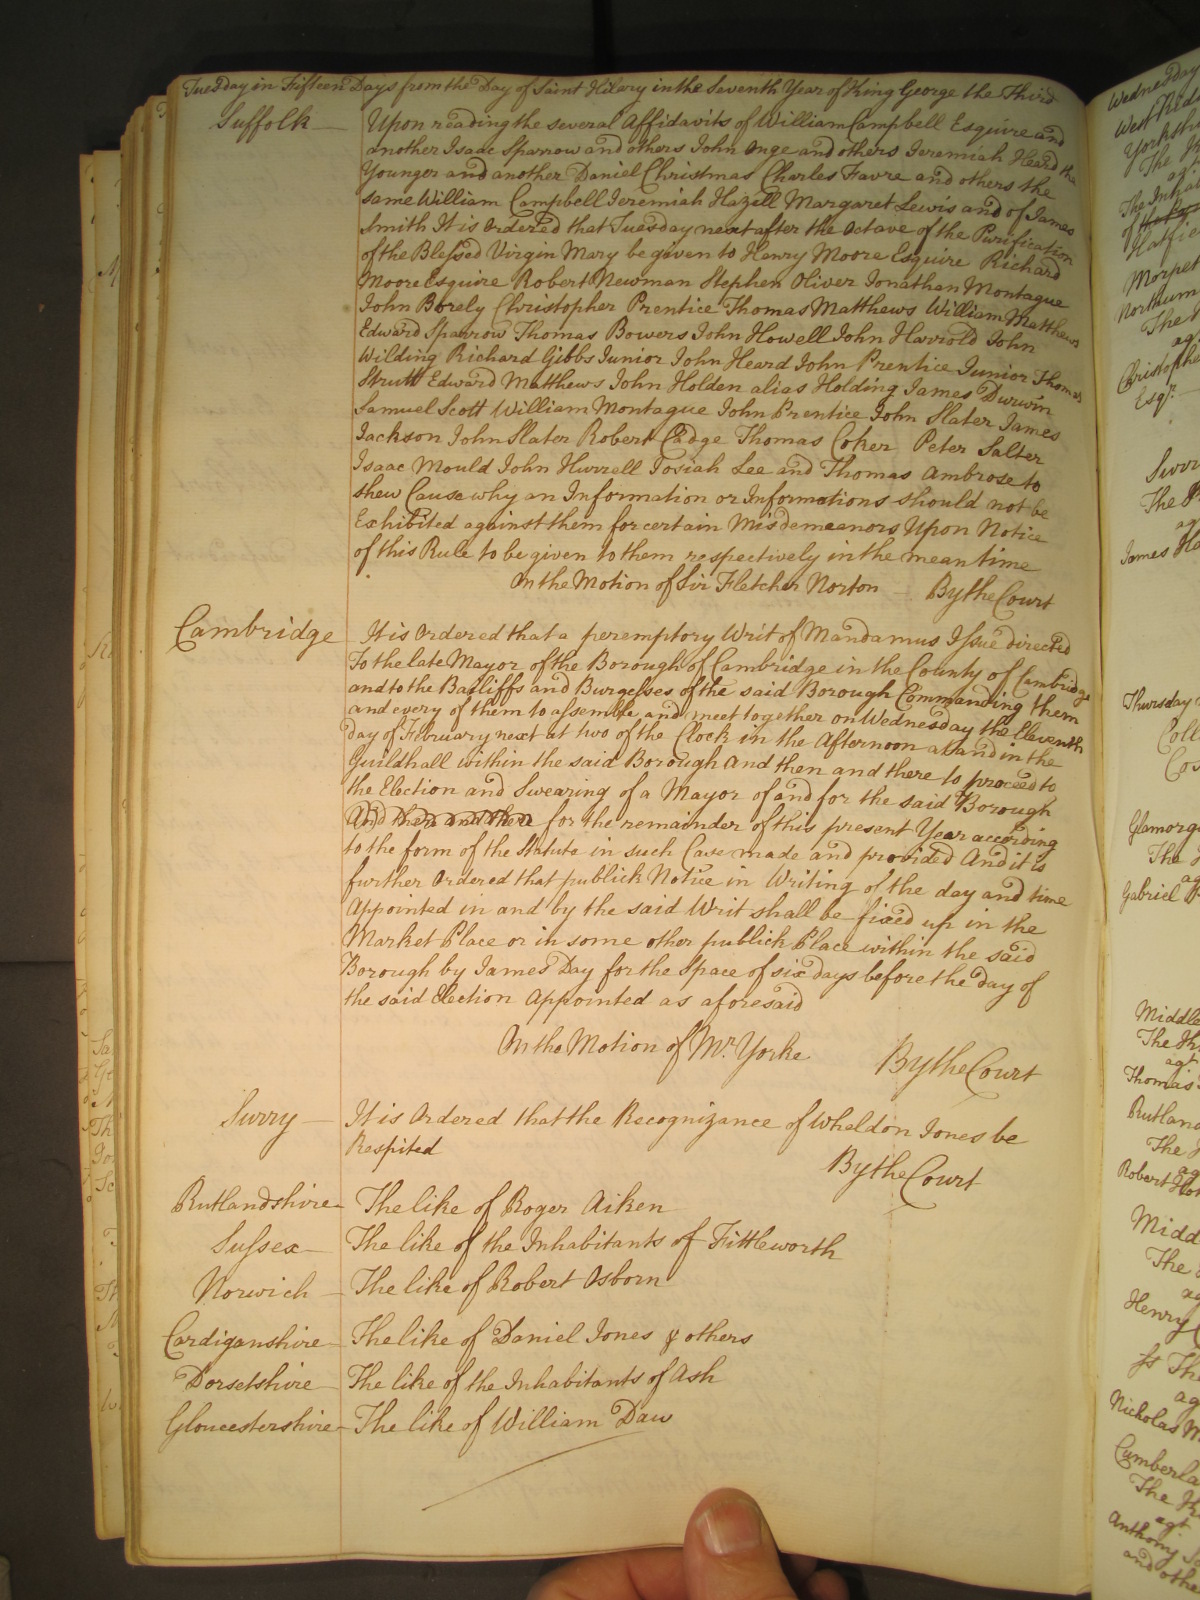 Tuesday in Fifteen Days from the Day of Saint Hilary in the Seventh Year of King George the Third
Suffolk — Upon reading the several Affidavits of William Campbell Esquire and
another Isaac Sparrow and others John Inge and others Jeremiah Heard the
Younger and another Daniel Christmas Charles Favre and others the
same William Campbell Jeremiah Hazell Margaret Lewis and of James
Smith It is Ordered that Tuesday next after the Octave of the Purification
of the Blessed Virgin Mary be given to Henry Moore Esquire Richard
Moore Esquire Robert Newman Stephen Oliver Jonathan Montague
John Borely Christopher Prentice Thomas Matthews William Matthews
Edward Sparrow Thomas Bowers John Howell John Harrold John
Wilding Richard Gibbs Junior John Heard John Prentice Junior Thomas
Strutt Edward Matthews John Holden alias Holding James Durwin
Samuel Scott William Montague John Prentice John Slater James
Jackson John Slater Robert Cadge Thomas Coker Peter Salter
Isaac Mould John Hurrell Josiah Lee and Thomas Ambrose to
shew Cause why an Information or Informations should not be
Exhibited against them for certain Misdemeanors Upon Notice
of this Rule to be given to them respectively in the mean time
On the Motion of Sir Fletcher Norton — By the Court
Cambridge — It is Ordered that a peremptory Writ of Mandamus Issue directed
To the late Mayor of the Borough of Cambridge in the County of Cambridge
and to the Bailiffs and Burgesses of the said Borough Commanding them
and every of them to assemble and meet together on Wednesday the Eleventh
day of February next at two of the Clock in the Afternoon at and in the
Guildhall within the said Borough And then and there to proceed to
the Election and Swearing of a Mayor of and for the said Borough
And then and there for the remainder of this present Year according
to the form of the Statute in such Case made and provided And it is
further Ordered that publick Notice in Writing of the day and time
Appointed in and by the said Writ shall be fixed up in the
Market Place or in some other publick Place within the said
Borough by James Day for the Space of six days before the day of
the said Election Appointed as aforesaid
On the Motion of Mr. Yorke By the Court
Surry — It is Ordered that the Recognizance of Wheldon Jones be
Respited
By the Court
Rutlandshire — The like of Roger Aiken
Sussex — The like of the Inhabitants of Fittleworth
Norwich — The like of Robert Osborn
Cardiganshire — The like of Daniel Jones & others
Dorsetshire — The like of the Inhabitants of Ash
Gloucestershire — The like of William Daw
Wednesday
West Rid
Yorkshi
The
ag
The Inha
of
Hatfie
Morpet
Northum
The
ag
Christophe
Esqr.
Surr
The
ag
James Ha
Thursday
Coll
Co
Glamorg
The
ag
Gabriel
Middle
The
agt
Thomas
Rutland
The
ag
Robert
Midd
The
ag
Henry
The
ag
Nicholas
Cumberla
The
agt
Anthony
and othe